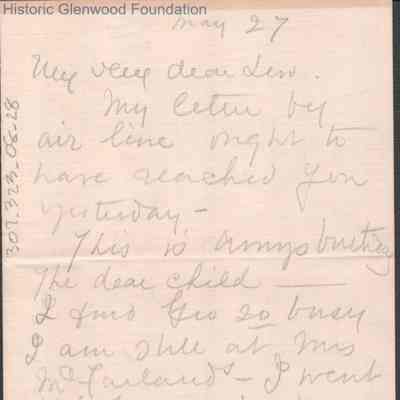 Historic Glenwood Foundation
May 27
My very dear Lew.
My letter by
air line ought to
have reached you
yesterday -
This is Amys birthday
The dear child —
I find Geo so busy
I am still at Mrs
McFarlands - I went
307.323_06-28